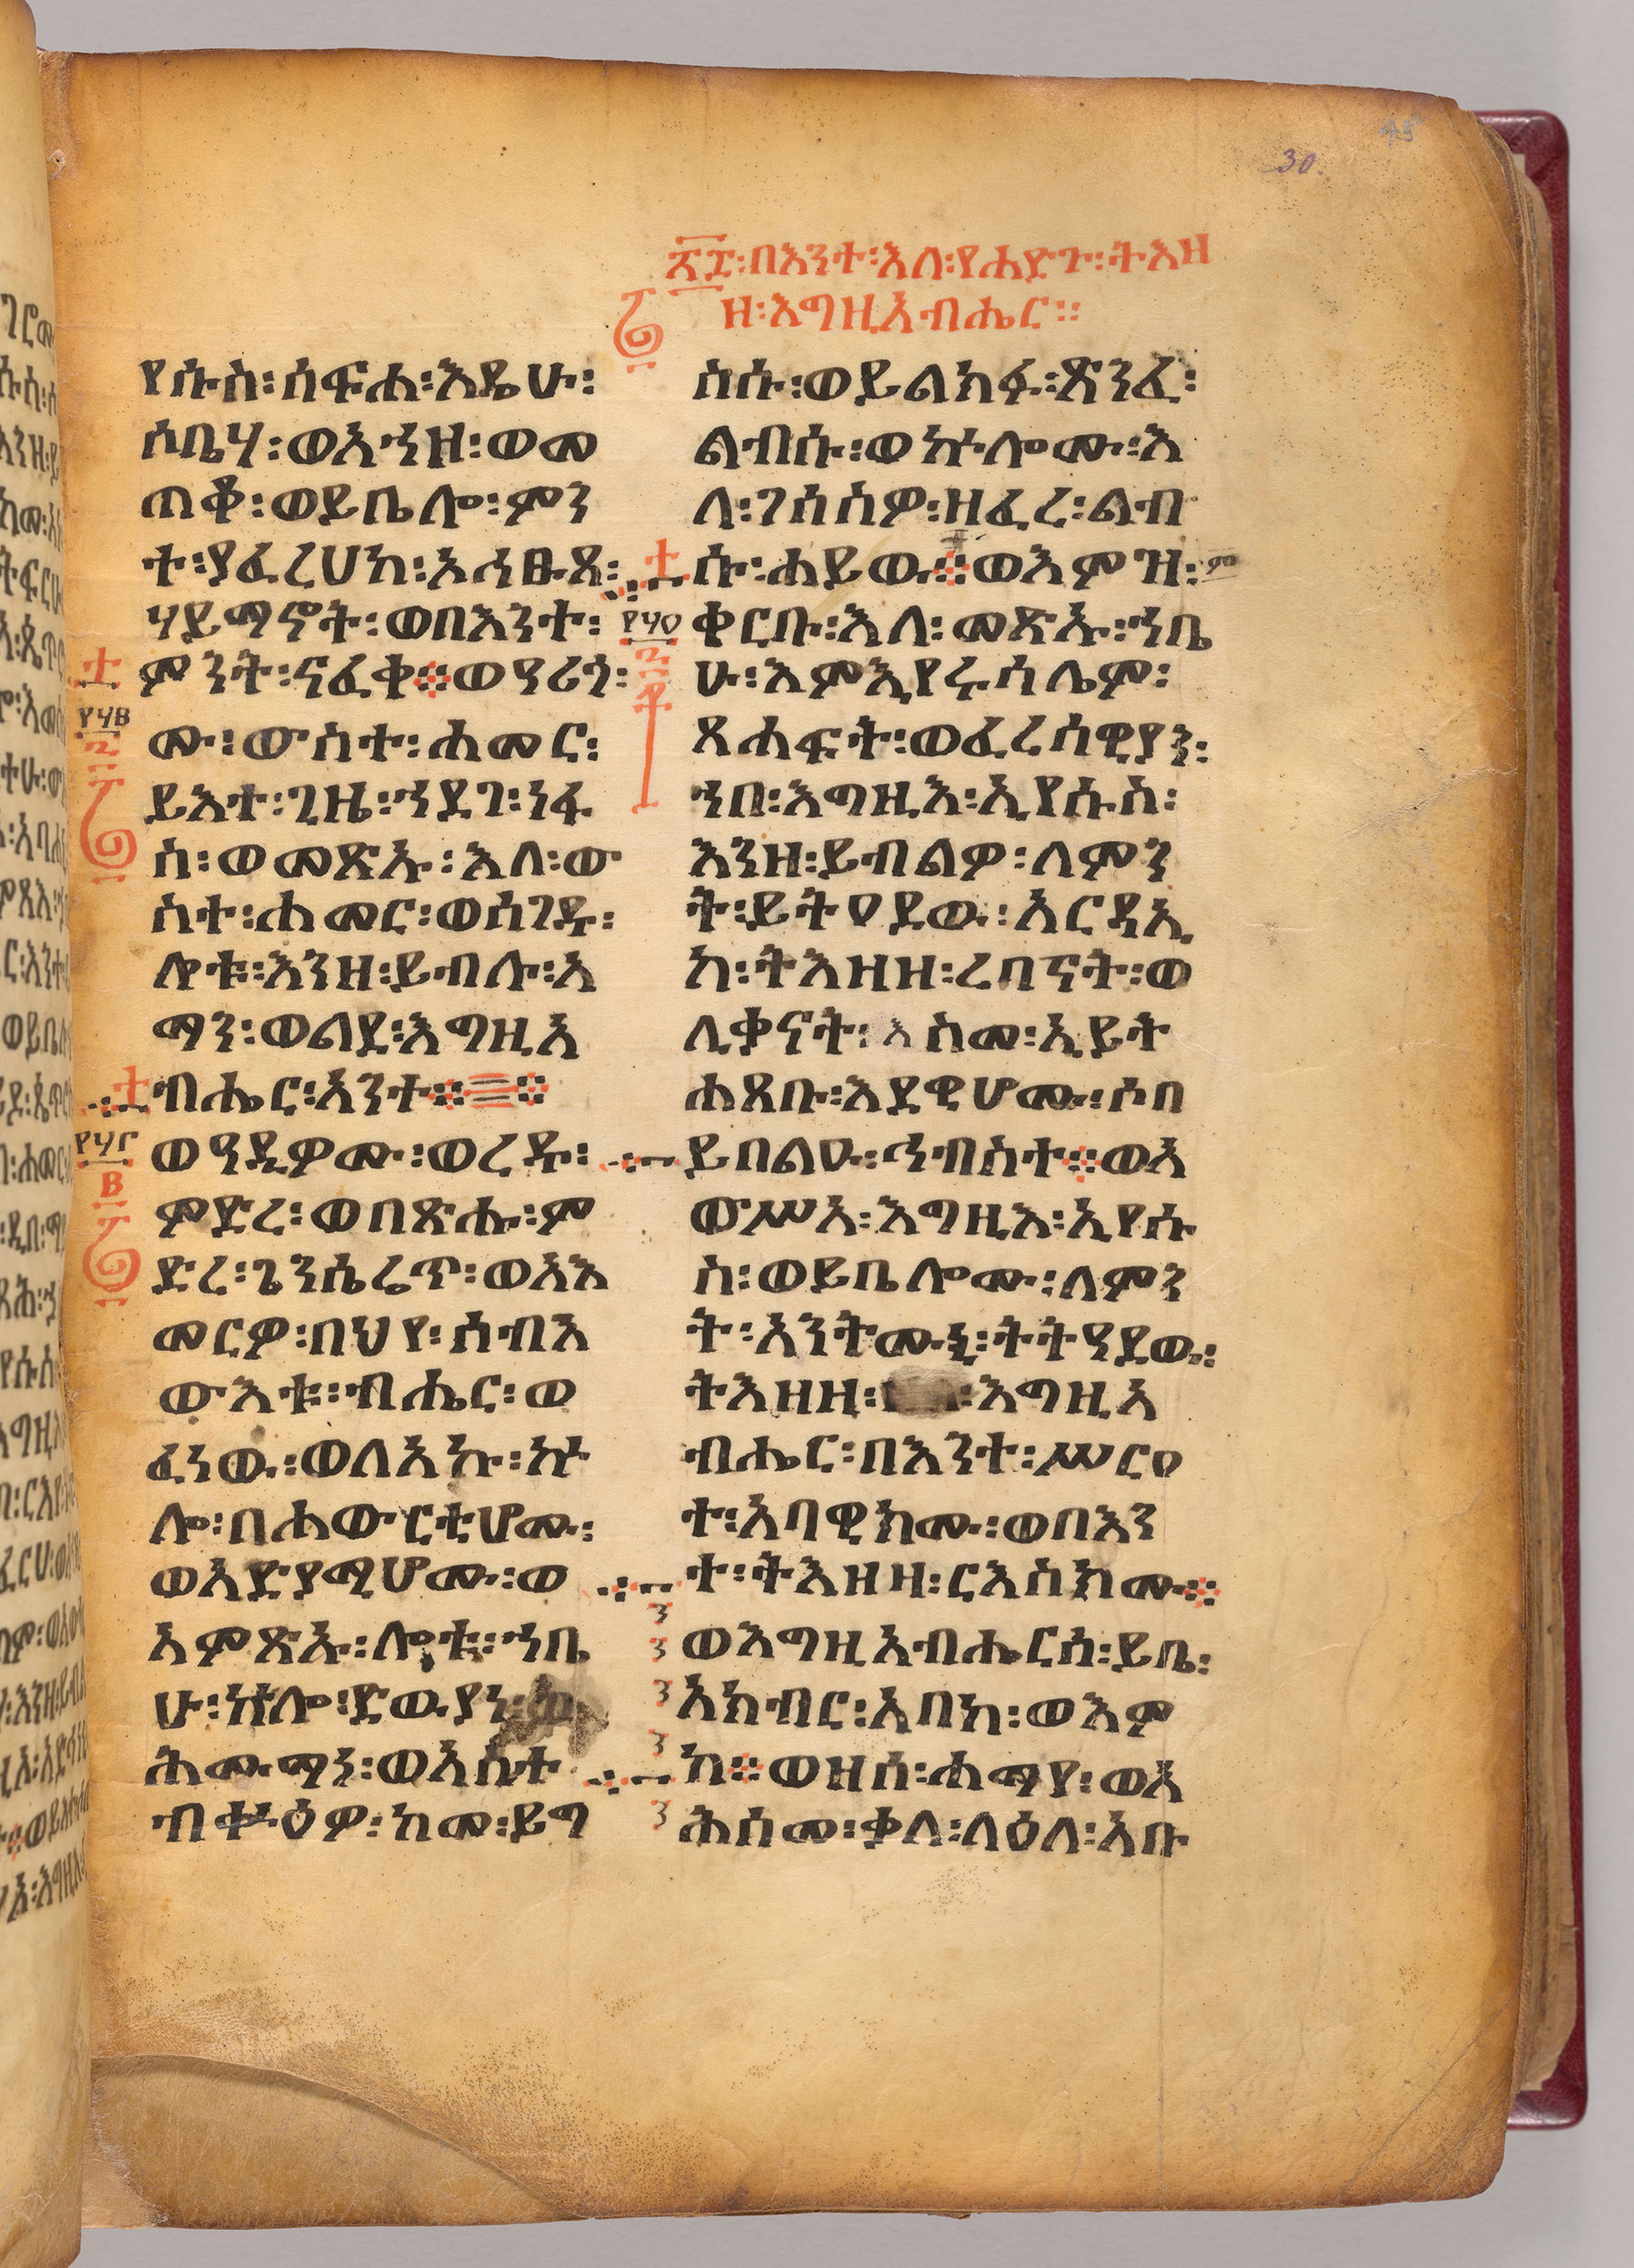 30.
፴፭፡በእንተ፡እለ፡የሐድጉ፡ትእዘ
ዘ፡እግዚአብሔር፡፡
የሱስ፡ሰፍሐ፡እዴሁ፡
ሶቤሃ፡ወአኀዘ፡ወመ
ጠቆ፡ወይቤሎ፡ምን
ተ፡ያፈረሀከ፡አሕፁጸ፡
ሃይማኖት፡ወበእንተ፡
ምንት፡ናፈቀ፨ወዓሪጎ፡
ሙ፡ውስተ፡ሐመር፡
ይእተ፡ጊዜ፡ኀደገ፡ነፋ
ስ፡ወመጽኡ፡እለ፡ው
ስተ፡ሐመር፡ወሰገዱ፡
ሎቱ፡እንዘ፡ይብሉ፡አ
ማን፡ወልደ፡እግዚአ
ብሔር፡አንተ፨፨
ወዓዲዎሙ፡ወረዱ፡
ምድረ፡ወበጽሑ፡ም
ድረ፡ጌንሴሬጥ፡ወአእ
መርዎ፡በህየ፡ሰብአ
ውእቱ፡ብሔር፡ወ
ፈነዉ፡ወለአኩ፡ኵ
ሎ፡በሐውርቲሆሙ፡
ወአድያሚሆሙ፡ወ
አምጽኡ፡ሎቱ፡ኀቤ
ሁ፡ኵሎ፡ድዉያነ፡
ሕሙማነ፡ወአስተ
ብቍዕዎ፡ከመ፡ይግ
ስሱ፡ወይልክፉ፡ጽንፈ፡
ልብሱ፡ወኵሎሙ፡እ
ለ፡ገሰስዎ፡ዘፈረ፡ልብ
ሱ፡ሐይዉ፨ወእምዝ፡
ቀርቡ፡እለ፡መጽኡ፡ኀቤ
ሁ፡እምኢየሩሳሌም፡
ጸሐፍት፡ወፈሪሳዊያን፡
ኀበ፡እግዚእ፡ኢየሱስ፡
እንዘ፡ይብልዎ፡ለምን
ት፡ይትዐደዉ፡አርዳኢ
ከ፡ትእዛዘ፡ረበናት፡ወ
ሊቃናት፡እስመ፡ኢይት
ሐጸቡ፡እደዊሆሙ፡ሶበ
ይበልዑ፡ኅብስተ፨ወአ
ውሥአ፡እግዚእ፡ኢየሱ
ስ፡ወይቤሎሙ፡ለምን
ት፡አንትሙኒ፡ትትዓደዉ፡
ትእዛዘ፡እግዚአ
ብሔር፡በእንተ፡ሥርዐ
ተ፡አባዊክሙ፡ወበእን
ተ፡ትእዛዘ፡ርእስክሙ፨
ወእግዚአብሔርሰ፡ይቤ፡
አክብር፡አበከ፡ወእም
ከ፨ወዘሰ፡ሐማየ፡ወአ
ሕሰመ፡ቃለ፡ላዕለ፡አቡ